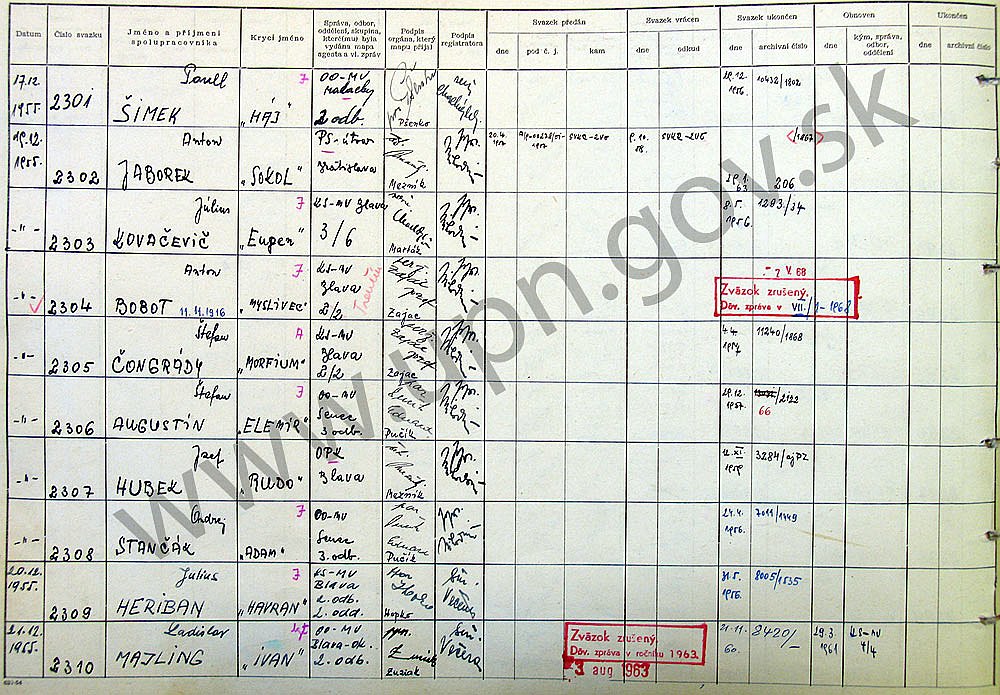 Datum
Číslo svazku
Jméno a příjmení
spolupracovníka
Krycí jméno
Správa, odbor,
oddělení, skupina,
kterému(í) byla
vydána mapa
agenta a vl. zpráv
Podpis
orgána, který
mapu přijí
Podpis
registratora
Svazek předán
dne
pod č. j.
kam
Svazek vrácen
dne
odkud
Svazek ukončen
dne
archivní číslo
Obnoven
dne
kým, správa,
odbor,
oddělení
Ukončen
dne
archivní číslo
17.12.
1955.
2301
Pavell
ŠIMEK
7
„HÁJ"
OO-MV
Malacky
2 odb.
Pšenko
29.12.
1956.
10432/1802
19.12.
1955.
2302
Anton
JABOREK
„SOKOL"
PS-útvar
Bratislava
Mezník
20.4.
SVKR-ZVO
9.10.
58.
SVKR-ZVO
/1867
29.1.
63
206
-"-
2303
Július
KOVAČEVIČ
7
„Eugen"
KS-MV Blava
3/6
Marták
8.5.
1956.
1293/34
-"-
2304
Anton
BOBOT 11.11.1916
7
„MYSLIVEC"
KS-MV
Blava
II/2
Trenčín
Zajac
- 7 V. 68
Zväzok zrušený.
Dôv. zpráva v VII./1-1968
-"-
2305
Štefan
ČONGRÁDY
A
„MORFIUM"
KS-MV
Blava
II/2
Zajac
4.4.
1957.
11240/1868
-"-
2306
Štefan
AUGUSTÍN
7
„ELEMÍR"
OO-MV
Senec
3.odb.
Eduard
Pučík
29.12.
1957.
/2122
66
-"-
2307
Jozef
HUBEK
„RUDO"
OPK
Blava
Mezník
12.XI.
1959
3284/ajPZ
-"-
2308
Ondrej
STANČÁK
7
„ADAM"
OO-MV
Senec
3.odb.
Eduard
Pučík
24.4.
1956.
7011/1449
20.12.
1955.
2309
Julius
HERIBAN
7
„HAVRAN"
KS-MV
Blava
2.odb.
2.odd.
Hopko
Šim.
Večera
31.5.
1956.
8005/1535
21.12.
1955.
2310
Ladislav
MAJLING
„IVAN"
OO-MV
Blava-ok.
2.odb.
Zuziak
Šim.
Večera
Zväzok zrušený.
Dôv. zpráva v ročníku 1963.
3 aug 1963
21.11.
60.
8420/-
29.3.
1961
KS-MV
4/4
www.upn.gov.sk